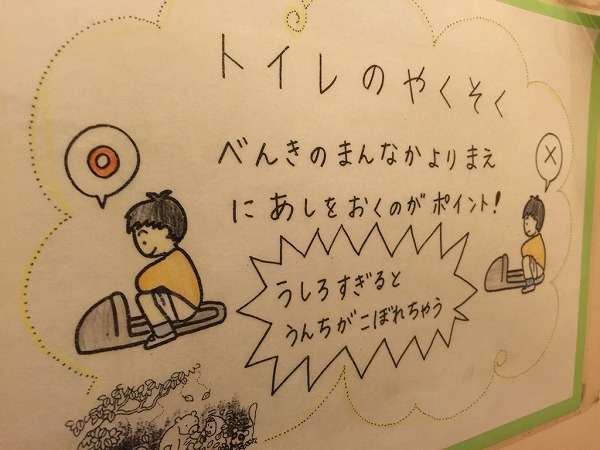 トイレのやくそく
べんきのまんなかよりまえ
にあしをおくのがポイント!
うしろすぎると
うんちがこぼれちゃう